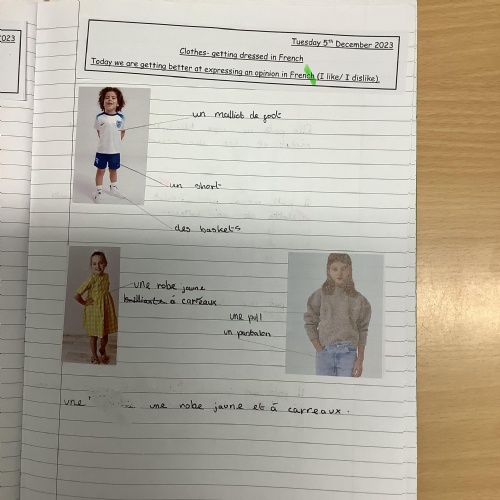 023
Tuesday 5th December 2023
Clothes- getting dressed in French
Today we are getting better at expressing an opinion in French (I like/ I dislike).
un malliot de foot
un short
des baskets
une robe jaune
à carreaux
une pull
un pantalon
une une robe jaune et à carreaux.